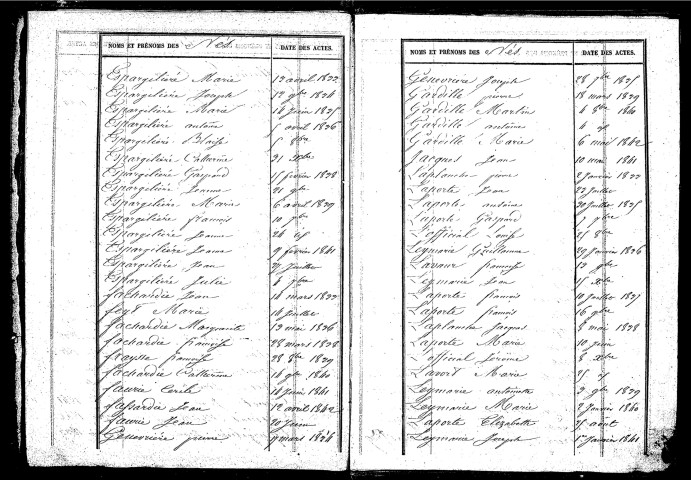 NOMS ET PRÉNOMS DES Nés. DATE DES ACTES.
Espargilière Marie 12 avril 1833
Espargilière Joseph 12 9bre 1834
Espargilière Marie 14 juin 1835
Espargilière antoine 5 avril 1836
Espargilière Blaise 5 8bre
Espargilière Catherine 31 Xbre
Espargilière Gaspard 15 février 1838
Espargilière Jeanne 21 9bre
Espargilière Marie 6 avril 1839
Espargilière françois 10 7bre
Espargilière Jeanne 26 id
Espargilière Jeanne 9 février 1841
Espargilière Jean 27 Juillet
Espargilière Julie 4 7bre
fachardie Jean 16 mars 1833
Marie 14 Juillet
fachardie Marguerite 12 mai 1836
fachardie françoise 28 mars 1838
françoise 28 8bre 1839
fachardie Catherine 16 9bre 1840
faurie Cécile 14 juin 1841
fassardie Jean 12 avril 1842
faurie Jean 20 Juin
Genevrière pierre 9 mars 1834
NOMS ET PRÉNOMS DES Nés. DATE DES ACTES.
Genevrière Joseph 28 7bre 1835
Gardille pierre 18 mars 1839
Gardille Martin 4 8bre 1840
Gardille antoine 4 id
Gardille Marie 6 mai 1842
Jacques Jean 10 mai 1841
Laplanche pierre 2 Janvier 1833
Laporte Jean 22 Juillet
Laporte antoine 30 Juillet 1835
Laporte Gaspard 1 7bre
L'official Louise 25 8bre
Leymarie Guillaume 29 Janvier 1836
Lavaur françoise 12 9bre
Leymarie Jean 15 Xbre
Laporte françois 10 Juillet 1837
Laporte françois 16 9bre
Laplanche Jacques 8 mai 1838
Laporte Marie 10 juin
L'official Jérôme 8 Xbre
Marie 25 id
Leymarie antoinette 3 9bre 1839
Leymarie Marie 2 Janvier 1840
Laporte Elizabeth 25 août
Leymarie Joseph 1er Janvier 1841